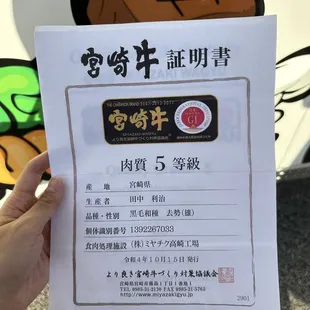 宮崎牛 証明書
THE CHAMPION BRAND 2007・2012・2017
宮崎牛
MIYAZAKI WAGYU
より良き宮崎牛づくり対策協議会
GI
肉質 5 等級
産地 宮崎県
生産者 田中 利治
品種・性別 黒毛和種 去勢(雄)
個体識別番号 1392267033
食肉処理施設 (株)ミヤチク高崎工場
令和4年10月15日 発行
より良き宮崎牛づくり対策協議会
http://www.miyazakigyu.jp
2901